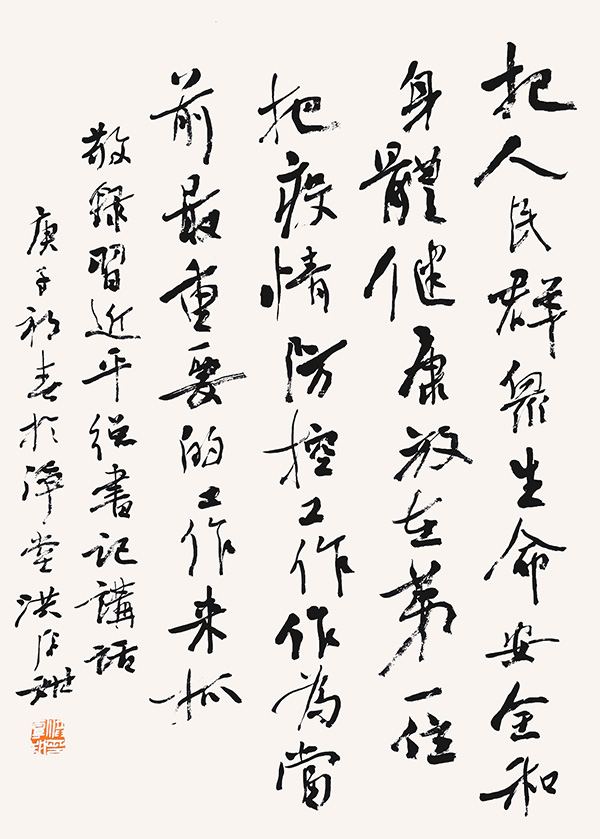 把人民群衆生命安全和
身體健康放在第一位
把疫情防控工作作為當
前最重要的工作来抓
敬録習近平總書記講話
庚子初春於淨堂洪厚甜